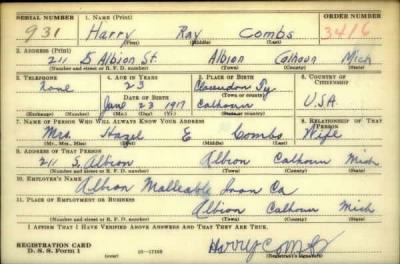 SERIAL NUMBER 1. NAME (Print) ORDER NUMBER
931 Harry Ray Combs 3416
(First) (Middle) (Last)
2. ADDRESS (Print)
211 S Albion St. Albion Calhoun Mich
(Number and street or R. F. D. number) (Town) (County) (State)
3. TELEPHONE 4. AGE IN YEARS 5. PLACE OF BIRTH 6. COUNTRY OF CITIZENSHIP
None 23 Clarendon Tp.
DATE OF BIRTH (Town or county)
June 23 1917 Calhoun U.S.A.
(Exchange) (Number) (Mo.) (Day) (Yr.) (State or country)
7. NAME OF PERSON WHO WILL ALWAYS KNOW YOUR ADDRESS 8. RELATIONSHIP OF THAT PERSON
Mrs. Hazel E Combs Wife
(Mr., Mrs., Miss) (First) (Middle) (Last)
9. ADDRESS OF THAT PERSON
211 S. Albion Albion Calhoun Mich
(Number and street or R. F. D. number) (Town) (County) (State)
10. EMPLOYER'S NAME
Albion Malleable Iron Co
11. PLACE OF EMPLOYMENT OR BUSINESS
Albion Calhoun Mich
(Number and street or R. F. D. number) (Town) (County) (State)
I AFFIRM THAT I HAVE VERIFIED ABOVE ANSWERS AND THAT THEY ARE TRUE.
REGISTRATION CARD
D. S. S. Form 1 (over) Harry Combs
(Registrant's signature)